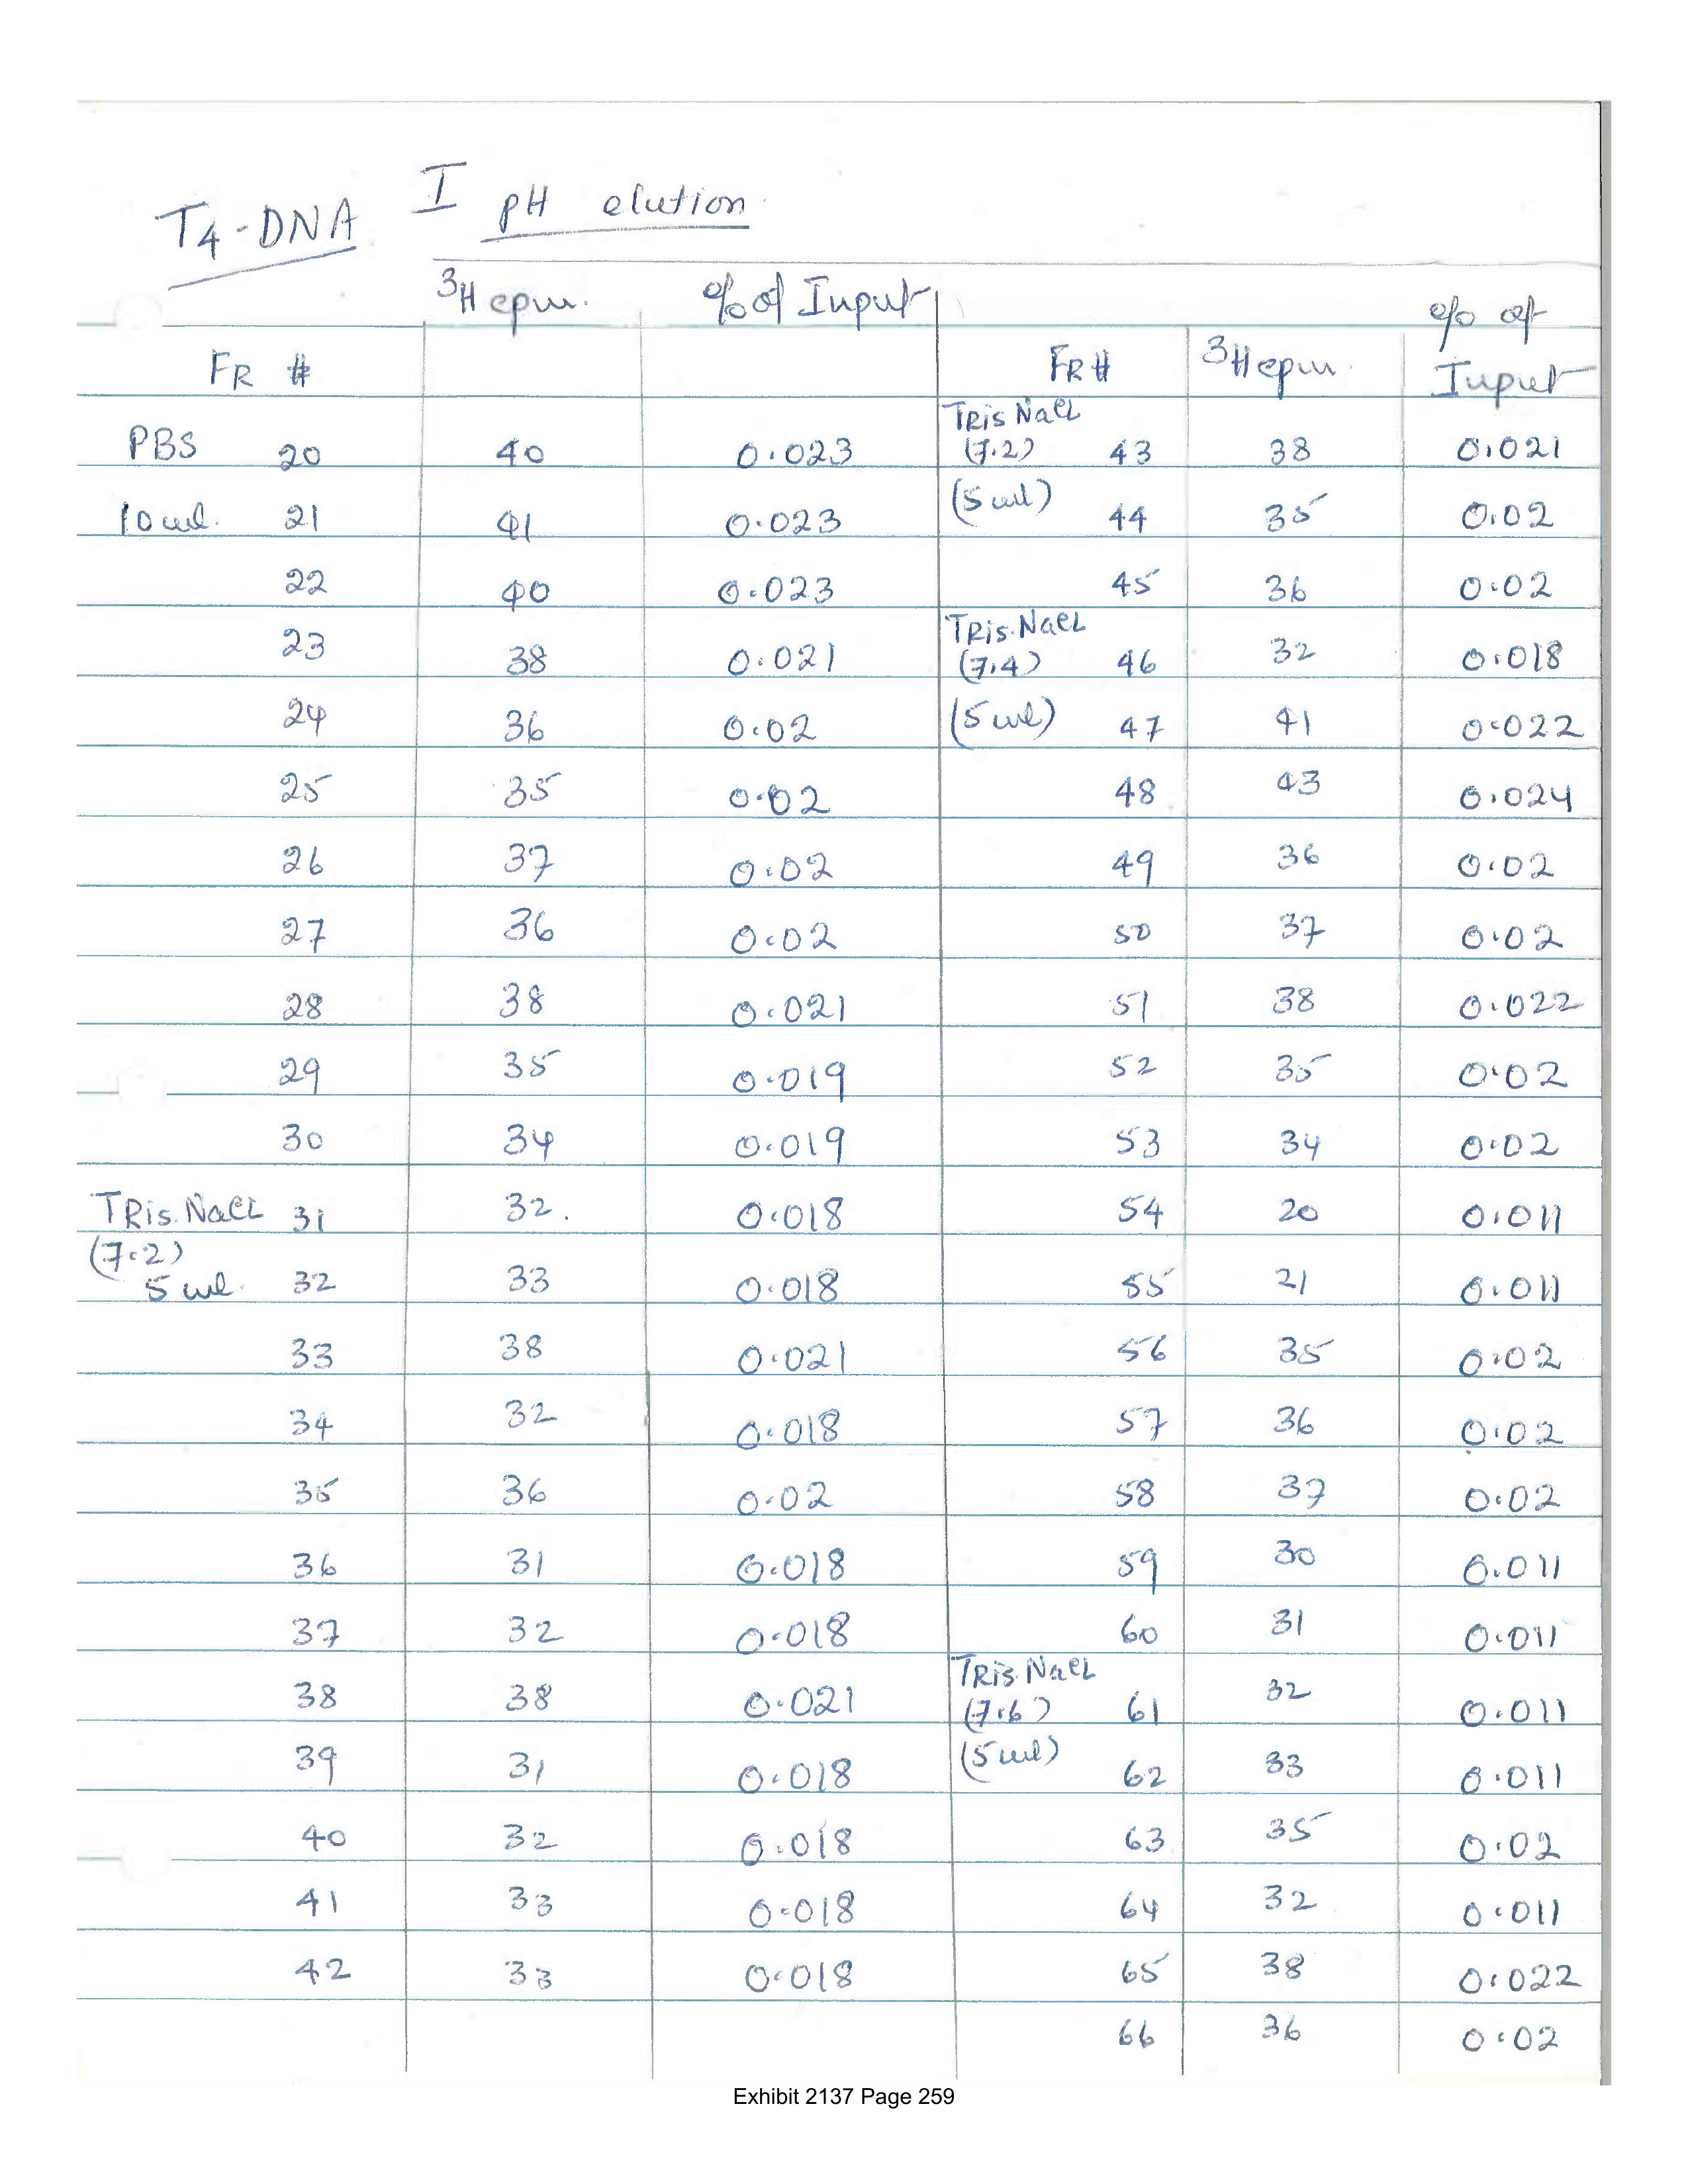 T4-DNA I pH elution
3H cpm. % of Input
% of
FR # FR # 3H cpm. Input
PBS 20 40 0.023 TRis NaCl (7.2) 43 38 0.021
10 ml. 21 41 0.023 (5 ml) 44 35 0.02
22 40 0.023 45 36 0.02
23 38 0.021 TRis.NaCl (7.4) 46 32 0.018
24 36 0.02 (5 ml) 47 41 0.022
25 35 0.02 48 43 0.024
26 37 0.02 49 36 0.02
27 36 0.02 50 37 0.02
28 38 0.021 51 38 0.022
29 35 0.019 52 35 0.02
30 34 0.019 53 34 0.02
TRis.NaCl 31 32. 0.018 54 20 0.011
(7.2) 5 ml. 32 33 0.018 55 21 0.011
33 38 0.021 56 35 0.02
34 32 0.018 57 36 0.02
35 36 0.02 58 37 0.02
36 31 0.018 59 30 0.011
37 32 0.018 60 31 0.011
38 38 0.021 TRis.NaCl (7.6) 61 32 0.011
39 31 0.018 (5 ml) 62 33 0.011
40 32 0.018 63 35 0.02
41 33 0.018 64 32 0.011
42 33 0.018 65 38 0.022
66 36 0.02
Exhibit 2137 Page 259